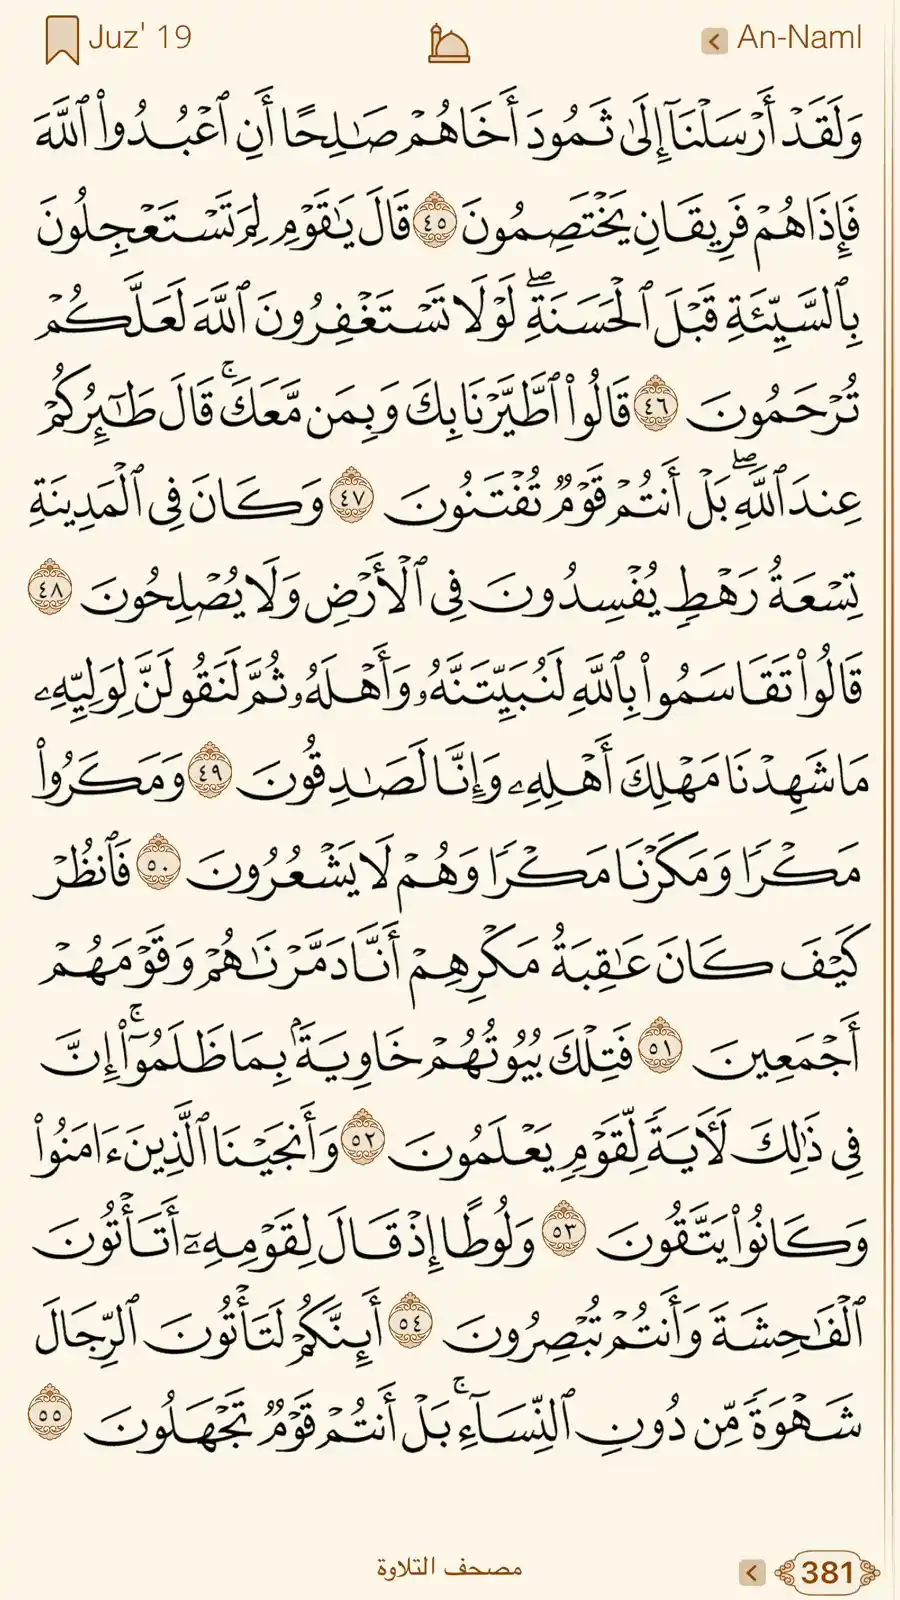 Juz' 19
An-Naml
وَلَقَدْ أَرْسَلْنَآ إِلَىٰ ثَمُودَ أَخَاهُمْ صَـٰلِحًا أَنِ ٱعْبُدُوا۟ ٱللَّهَ
فَإِذَا هُمْ فَرِيقَانِ يَخْتَصِمُونَ ٤٥ قَالَ يَـٰقَوْمِ لِمَ تَسْتَعْجِلُونَ
بِٱلسَّيِّئَةِ قَبْلَ ٱلْحَسَنَةِ ۖ لَوْلَا تَسْتَغْفِرُونَ ٱللَّهَ لَعَلَّكُمْ
تُرْحَمُونَ ٤٦ قَالُوا۟ ٱطَّيَّرْنَا بِكَ وَبِمَن مَّعَكَ ۚ قَالَ طَـٰٓئِرُكُمْ
عِندَ ٱللَّهِ ۖ بَلْ أَنتُمْ قَوْمٌ تُفْتَنُونَ ٤٧ وَكَانَ فِى ٱلْمَدِينَةِ
تِسْعَةُ رَهْطٍ يُفْسِدُونَ فِى ٱلْأَرْضِ وَلَا يُصْلِحُونَ ٤٨
قَالُوا۟ تَقَاسَمُوا۟ بِٱللَّهِ لَنُبَيِّتَنَّهُۥ وَأَهْلَهُۥ ثُمَّ لَنَقُولَنَّ لِوَلِيِّهِۦ
مَا شَهِدْنَا مَهْلِكَ أَهْلِهِۦ وَإِنَّا لَصَـٰدِقُونَ ٤٩ وَمَكَرُوا۟
مَكْرًا وَمَكَرْنَا مَكْرًا وَهُمْ لَا يَشْعُرُونَ ٥٠ فَٱنظُرْ
كَيْفَ كَانَ عَـٰقِبَةُ مَكْرِهِمْ أَنَّا دَمَّرْنَـٰهُمْ وَقَوْمَهُمْ
أَجْمَعِينَ ٥١ فَتِلْكَ بُيُوتُهُمْ خَاوِيَةًۢ بِمَا ظَلَمُوٓا۟ ۗ إِنَّ
فِى ذَٰلِكَ لَـَٔايَةً لِّقَوْمٍ يَعْلَمُونَ ٥٢ وَأَنجَيْنَا ٱلَّذِينَ ءَامَنُوا۟
وَكَانُوا۟ يَتَّقُونَ ٥٣ وَلُوطًا إِذْ قَالَ لِقَوْمِهِۦٓ أَتَأْتُونَ
ٱلْفَـٰحِشَةَ وَأَنتُمْ تُبْصِرُونَ ٥٤ أَئِنَّكُمْ لَتَأْتُونَ ٱلرِّجَالَ
شَهْوَةً مِّن دُونِ ٱلنِّسَآءِ ۚ بَلْ أَنتُمْ قَوْمٌ تَجْهَلُونَ ٥٥
مصحف التلاوة
381